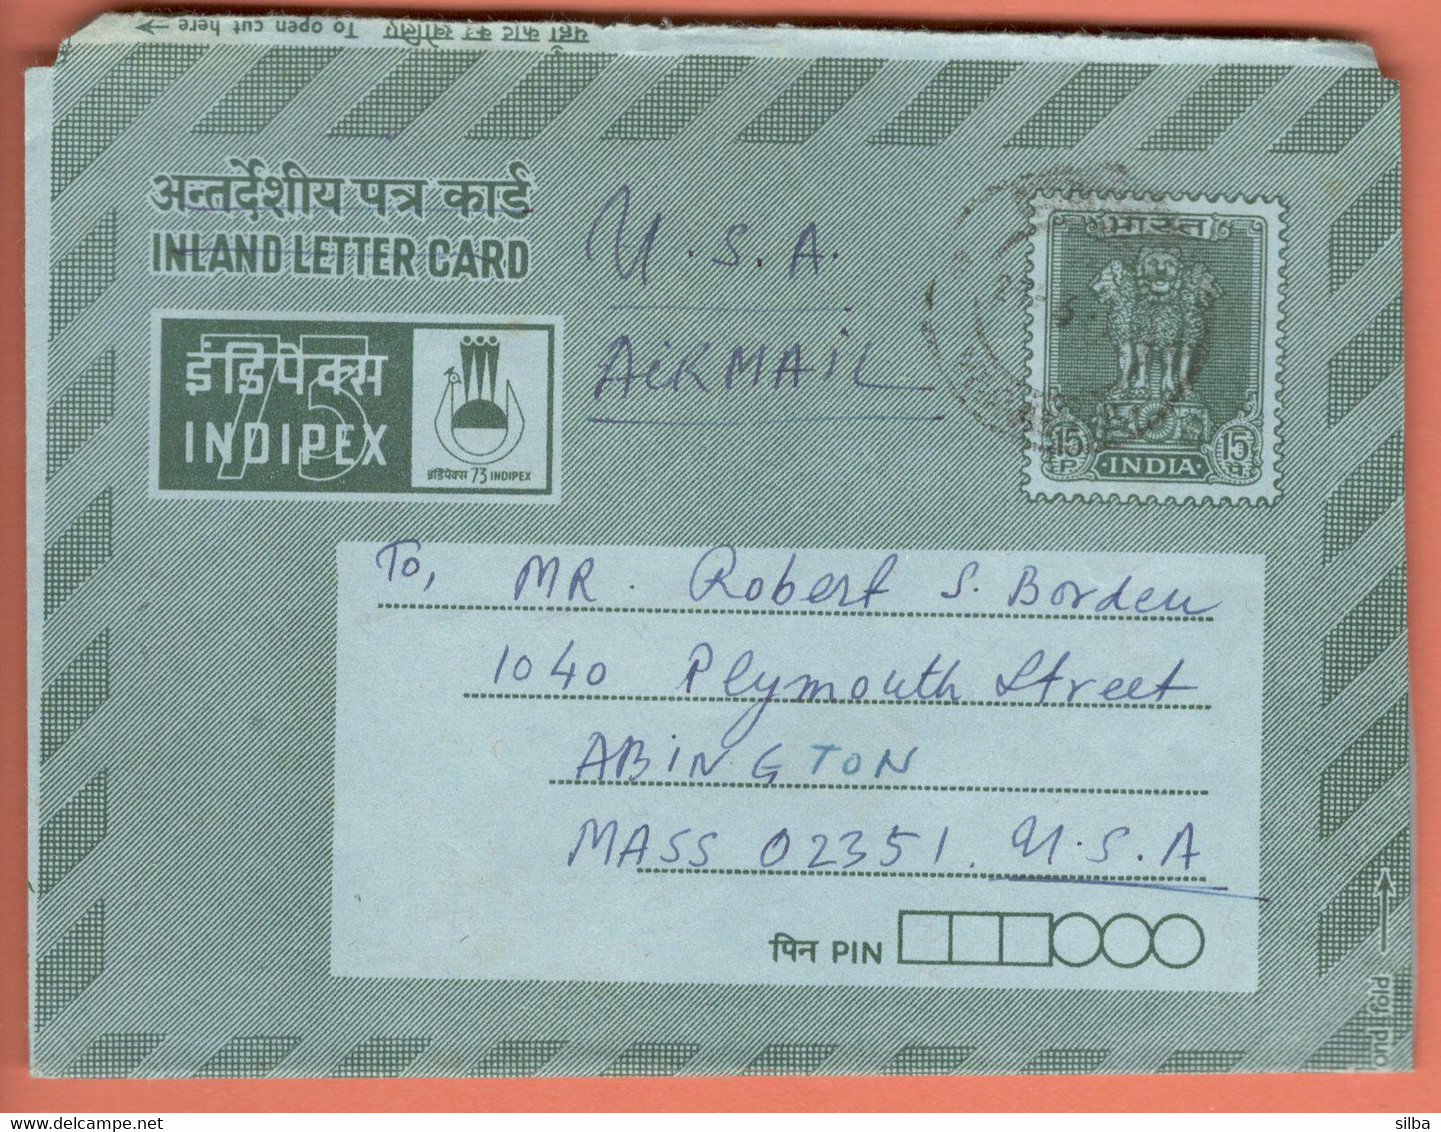 यहाँ काट कर खोलिए To open cut here
अन्तर्देशीय पत्र कार्ड
INLAND LETTER CARD
U.S.A.
AIRMAIL
इंडिपेक्स
73
INDIPEX
इंडिपेक्स 73 INDIPEX
भारत
15 P. INDIA 15 पै.
To, MR. Robert S. Borden
1040 Plymouth Street
ABINGTON
MASS 02351. U.S.A
पिन PIN
ond fold
silba